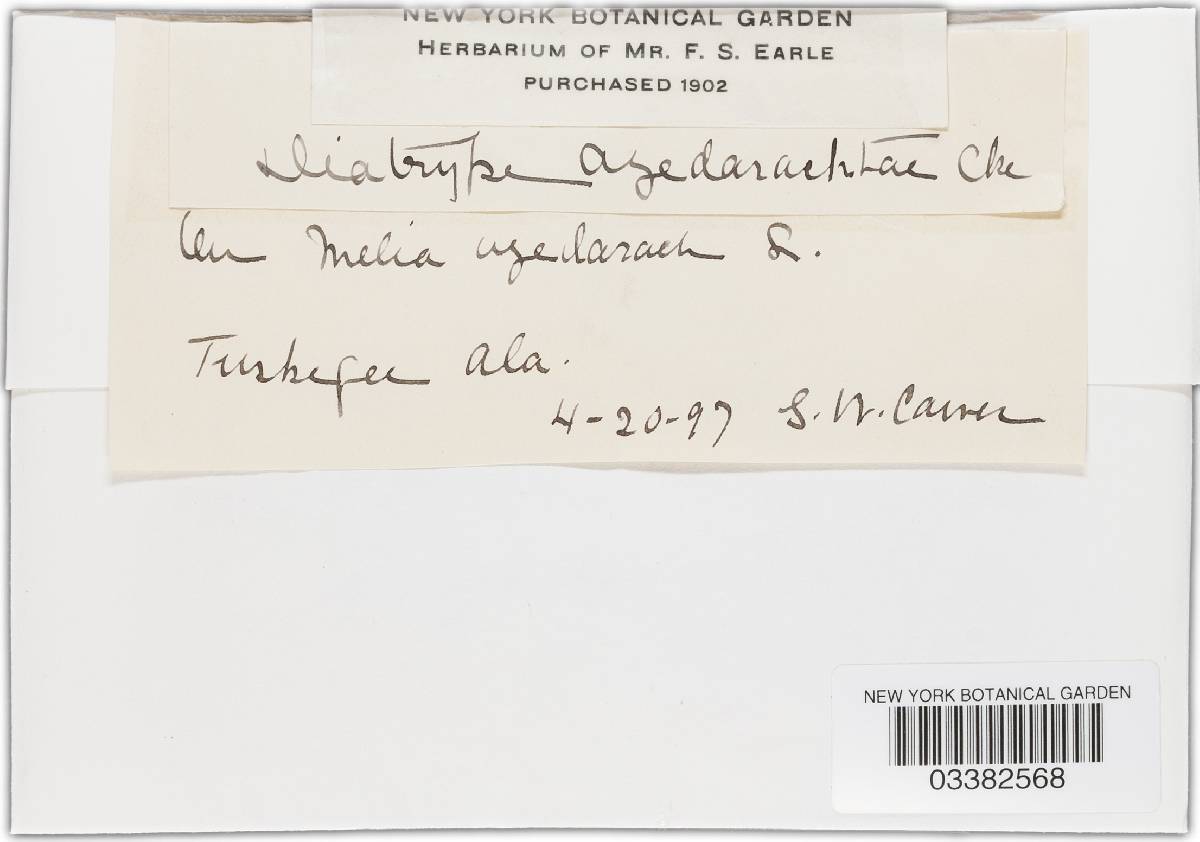 NEW YORK BOTANICAL GARDEN
HERBARIUM OF MR. F. S. EARLE
PURCHASED 1902
Diatrype azedarachtae Cke
On Melia azedarach L.
Tuskegee Ala.
4-20-97 G. W. Carver
NEW YORK BOTANICAL GARDEN
03382568